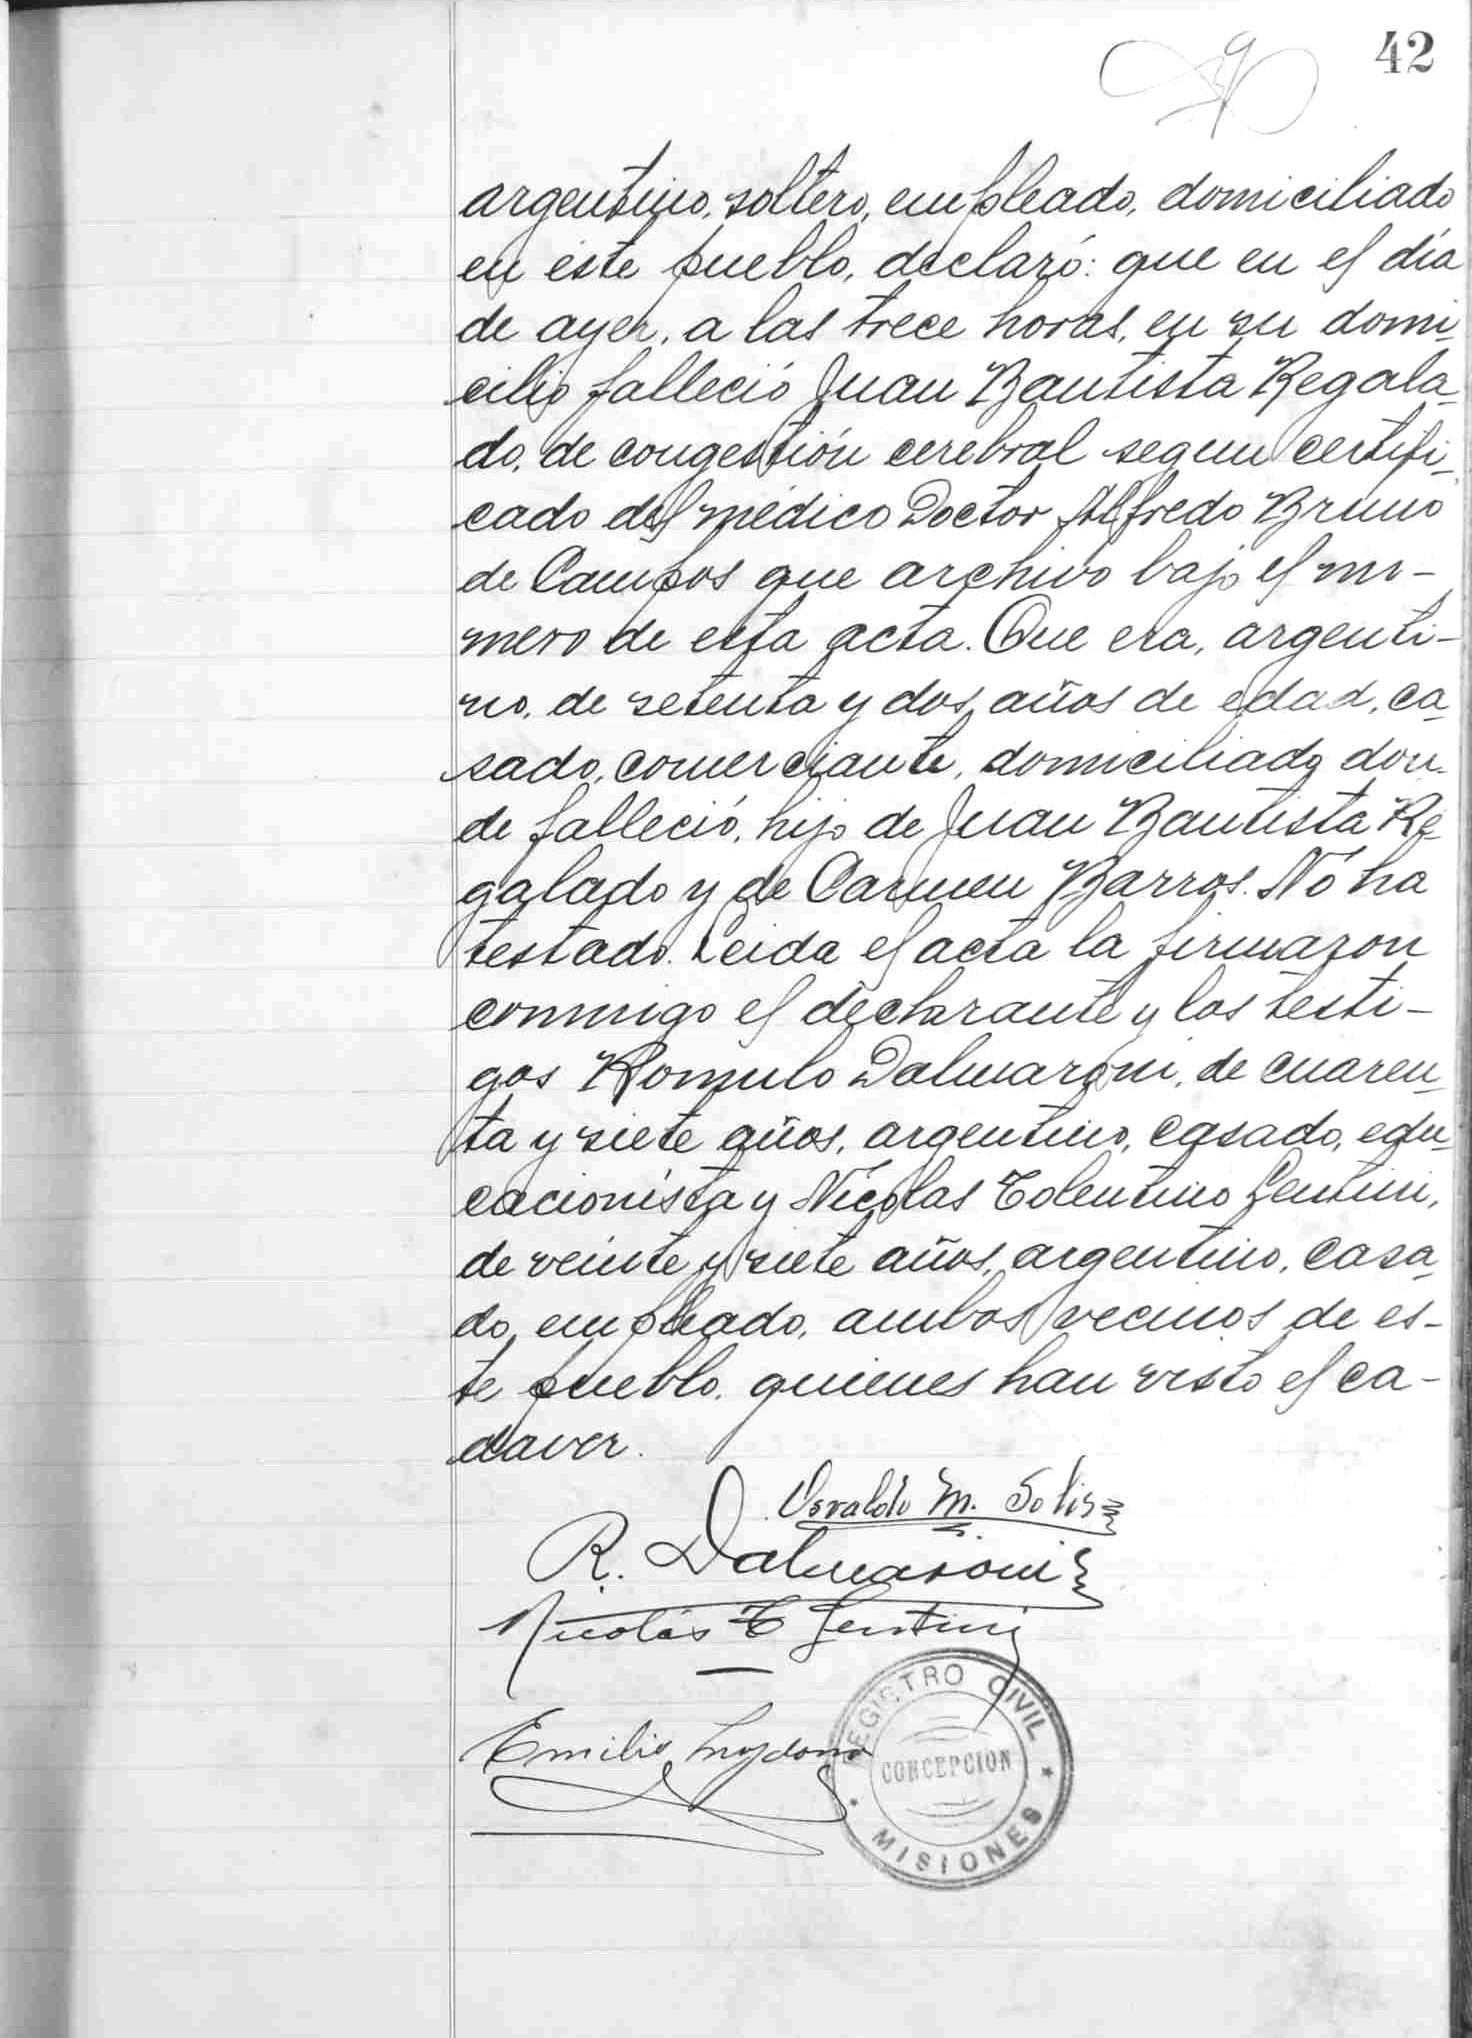 42
argentino, soltero, empleado, domiciliado
en éste pueblo, declaró: que en el día
de ayer, a las trece horas, en su domi-
cilio falleció Juan Bautista Regala-
do, de congestión cerebral segun certifi-
cado del médico Doctor Alfredo Bruno
de Campos que archivo bajo el nú-
mero de esta acta. Que era, argenti-
no, de setenta y dos años de edad, ca-
sado, comerciante, domiciliado don-
de falleció, hijo de Juan Bautista Re-
galado y de Carmen Barros. Nó ha
testado. Leida el acta la firmaron
conmigo el declarante y los testi-
gos Romulo Dalmaroni, de cuaren-
ta y siete años, argentino, casado, edu-
cacionista y Nicolas Tolentino Gentini,
de veinte y siete años, argentino, casa-
do, empleado, ambos vecinos de es-
te pueblo, quienes han visto el ca-
daver.
Osvaldo M. Solis
R. Dalmaroni
Nicolás T Gentini
Emilio
REGISTRO CIVIL
CONCEPCION
MISIONES